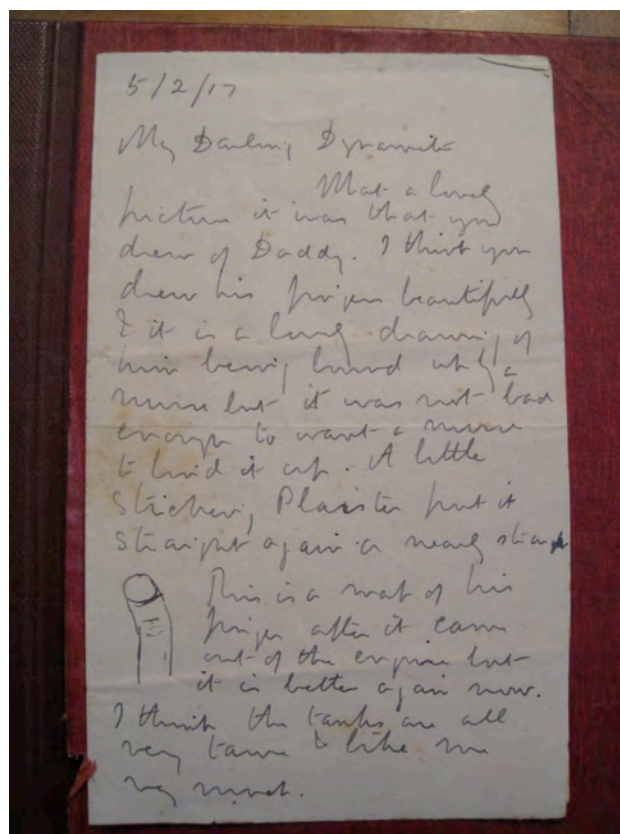 5/2/17
My Darling Dynamite
What a lovely
picture it was that you
drew of Daddy. I think you
drew his finger beautifully
& it is a lovely drawing of
him being bound up by a
nurse but it was not bad
enough to want a nurse
to bind it up. A little
Sticking Plaister put it
straight again or nearly straight
This is a map of his
finger after it came
out of the engine but
it is better again now.
I think the tanks are all
very tame & like me
very much.